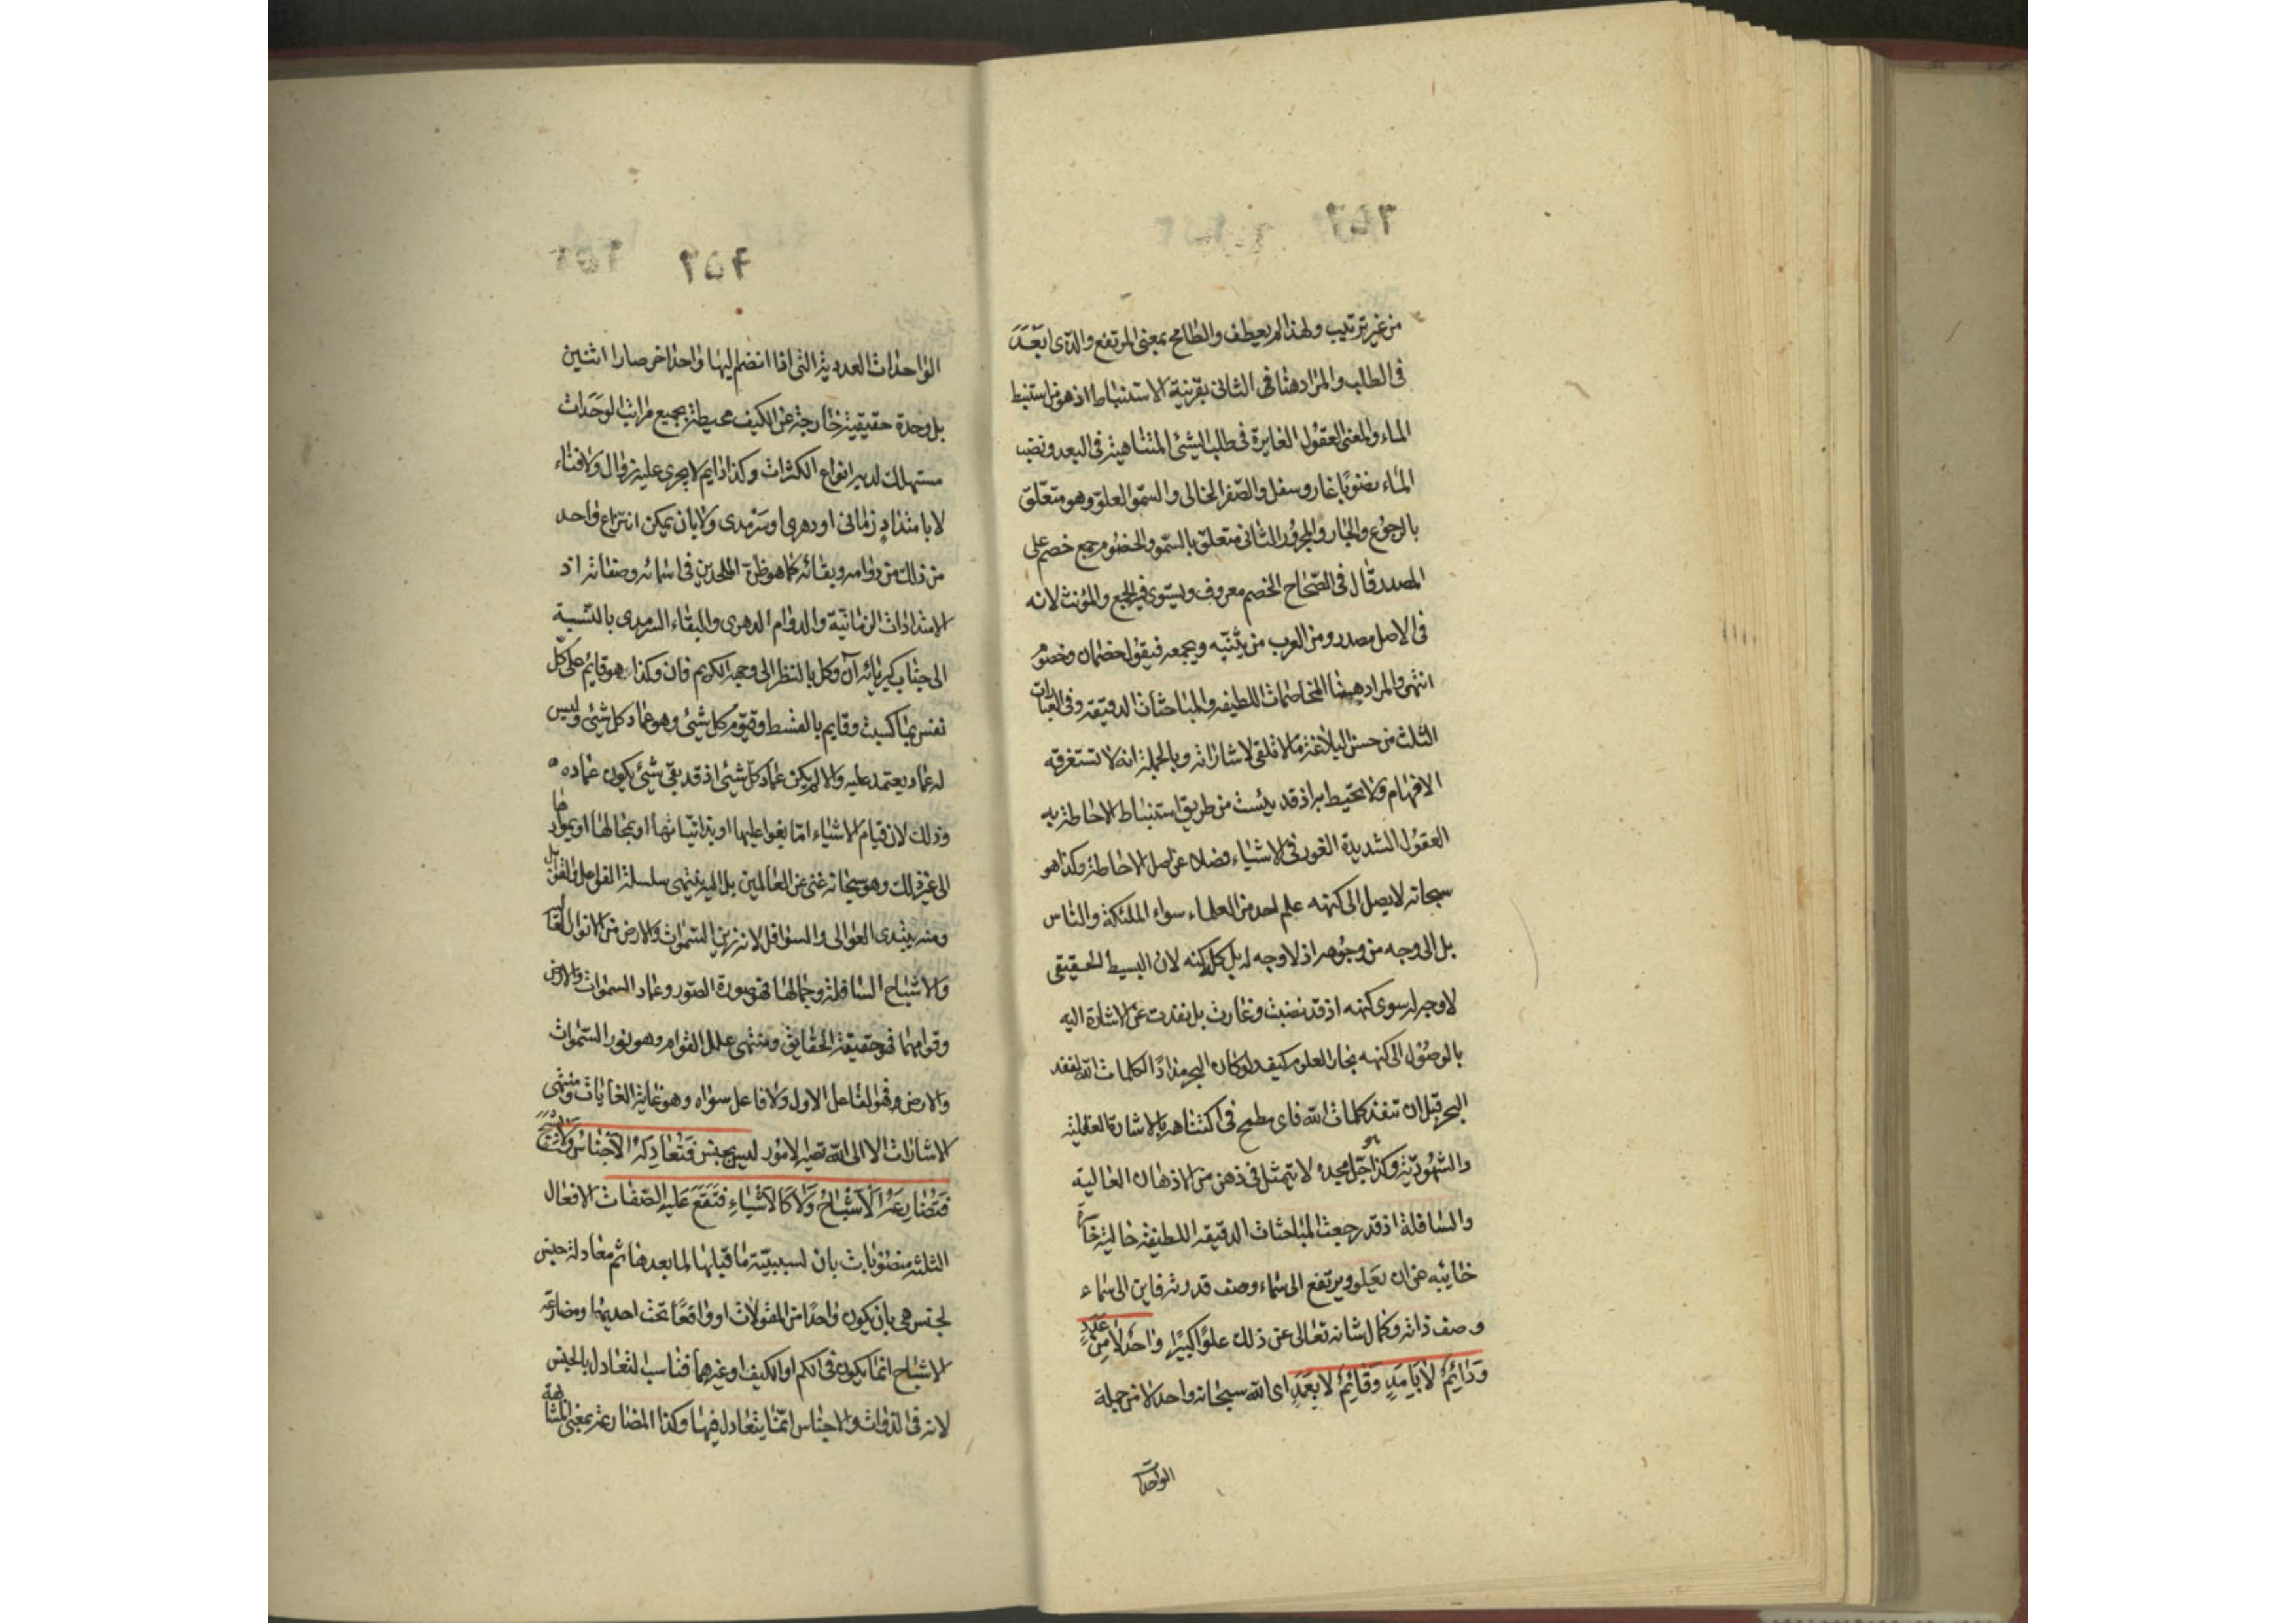 من غير ترتيب ولهذا لم يعطف والطامح بمعنى المرتفع والذى ابعد
فى الطلب والمراد هنا فى الثانى بقرينة الاستنباط اذ هو من استنبط
الماء والمعنى العقول الغايرة فى طلب الشئ المتناهية فى البعد ونضب
الماء نضوبا غار وسفل والصفر الخالى والسمو العلو وهو متعلق
بالرجوع والجار والمجرور الثانى متعلق بالسمو والخصوم جمع خصم على
المصدر قال فى الصحاح الخصم معروف ويستوى فيه الجمع والمؤنث لانه
فى الاصل مصدر ومن العرب من يثنيه ويجمعه فيقول خصمان وخصوم
انتهى والمراد هيهنا المخاصمات اللطيفه والمباحثات الدقيقه وفى العبارات
الثلث من حسن البلاغة ما لا تلقى لاشاراته وبالجملة انه لا تستغرقه
الافهام ولا تحيط به اذ قد يئست من طريق استنباط الاحاطة به
العقول الشديدة الغور فى الاشياء فضلا عن اصل الاحاطة وكذا هو
سبحانه لا يصل الى كنهه علم احد من العلماء سواء الملئكة والناس
بل الى وجه من وجوهه اذ لا وجه له بل كله كنه لان البسيط الحقيقى
لا وجه له سوى كنهه اذ قد نضبت وغارت بل نفدت عن الاشارة اليه
بالوصول الى كنهه بحار العلوم كيف ولو كان البحر مدادا لكلمات الله لنفد
البحر قبل ان تنفد كلمات الله فاى مطمح فى اكتناهه بالاشارة العقلية
والشهودية وكذا جل مجده لا يتمثل فى ذهن من الاذهان العالية
والسافلة اذ قد رجعت المباحثات الدقيقه اللطيفة خالية خاسرة
خائبه هى ان يعلو ويرتفع الى سماء وصف قدرته فاين الى سماء
وصف ذاته وكمال شانه تعالى عن ذلك علوا كبيرا واحد لا من عدد
ودائم لا بامد وقائم لا بعمد اى الله سبحانه واحد لا من جملة
الواحدات
٦٥٢
الواحدات العددية التى اذا انضم اليها واحد اخر صارا اثنين
بل وحدة حقيقية خارجة عن الكيف محيطة بجميع مراتب الوحدات
مستهلك لديه انواع الكثرات وكذا دايم لا يجرى عليه زوال ولا فناء
لا بامتداد زمانى او دهرى او سرمدى ولا بان يمكن انتزاع واحد
من ذلك من دوامه وبقائه كما هو ظن الملحدين فى اسمائه وصفاته اذ
الامتدادات الزمانية والدوام الدهرى والبقاء السرمدى بالنسبة
الى جناب كبريائه آن وكل بالنظر الى وجهه الكريم فان وكذا هو قايم على كل
نفس بما كسبت وقايم بالقسط وقيوم كل شئ وهو عماد كل شئ وليس
له عماد يعتمد عليه والا لم يكن عماد كل شئ اذ قد بقى شئ يكون عماده
وذلك لان قيام الاشياء اما بفواعلها او بذاتياتها او بمحالها او بموادها
الى غير ذلك وهو سبحانه غنى عن العالمين بل اليه ينتهى سلسلة الفواعل والقوابل
ومنه يبتدى العوالى والسوافل لانه زين السموات والارض من الانوار العالية
والاشباح السافلة وجمالها فهو صورة الصور وعماد السموات والارض
وقوامهما فهو حقيقة الحقايق ومنتهى علل القوام وهو نور السموات
والارض وهو الفاعل الاول ولا فاعل سواه وهو غاية الغايات ومنتهى
الاشارات الا الى الله تصير الامور ليس بجنس فتعادله الاجناس ولا بشبح
فتضارعه الاشباح ولا كالاشياء فتقع عليه الصفات الافعال
الثلثة منصوبات بان لسببية ما قبلها لما بعدها ثم معادلة جنس
لجنس هى بان يكون واحدا من المقولات او واقعا تحت احديها ومضارعة
الاشباح انما يكون فى الكم او الكيف او غيرهما فناسب التعادل بالجنس
لانه فى الذوات والاجناس انما يتعادل فيها وكذا المضارعة بمعنى المشابهة